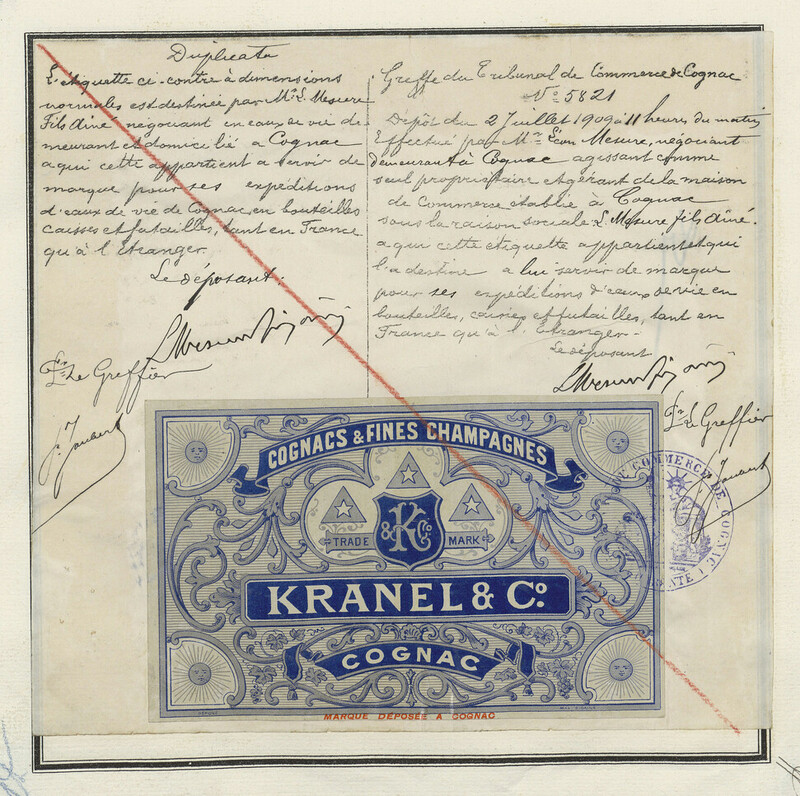 Duplicata
L'étiquette ci-contre à dimensions
normales est destinée par Mr L. Mesure
Fils Aîné négociant en eaux de vie de
meurant et domicilié à Cognac
a qui cette appartient a servir de
marque pour ses expéditions
d'eaux de vie de Cognac, en bouteilles
caisses et futailles, tant en France
qu'à l'Etranger.
Le déposant.
Le Greffier
J. Joubert
Greffe du Tribunal de Commerce de Cognac
No 5821
Dépôt du 2 Juillet 1909 à 11 heures du matin
Effectué par Mr Léon Mesure, négociant
demeurant à Cognac agissant comme
seul propriétaire et gérant de la maison
de Commerce établie à Cognac
sous la raison sociale L. Mesure fils aîné.
a qui cette étiquette appartient et qui
l'a destine a lui servir de marque
pour ses expéditions d'eaux de vie en
bouteilles, caisses et futailles, tant en
France qu'à l'Etranger.
Le déposant
Le Greffier
J. Joubert
COGNACS & FINES CHAMPAGNES
TRADE MARK
& K Co
KRANEL & Co.
COGNAC
DÉPOSÉ
MARQUE DÉPOSÉE A COGNAC
COMMERCE DE COGNAC